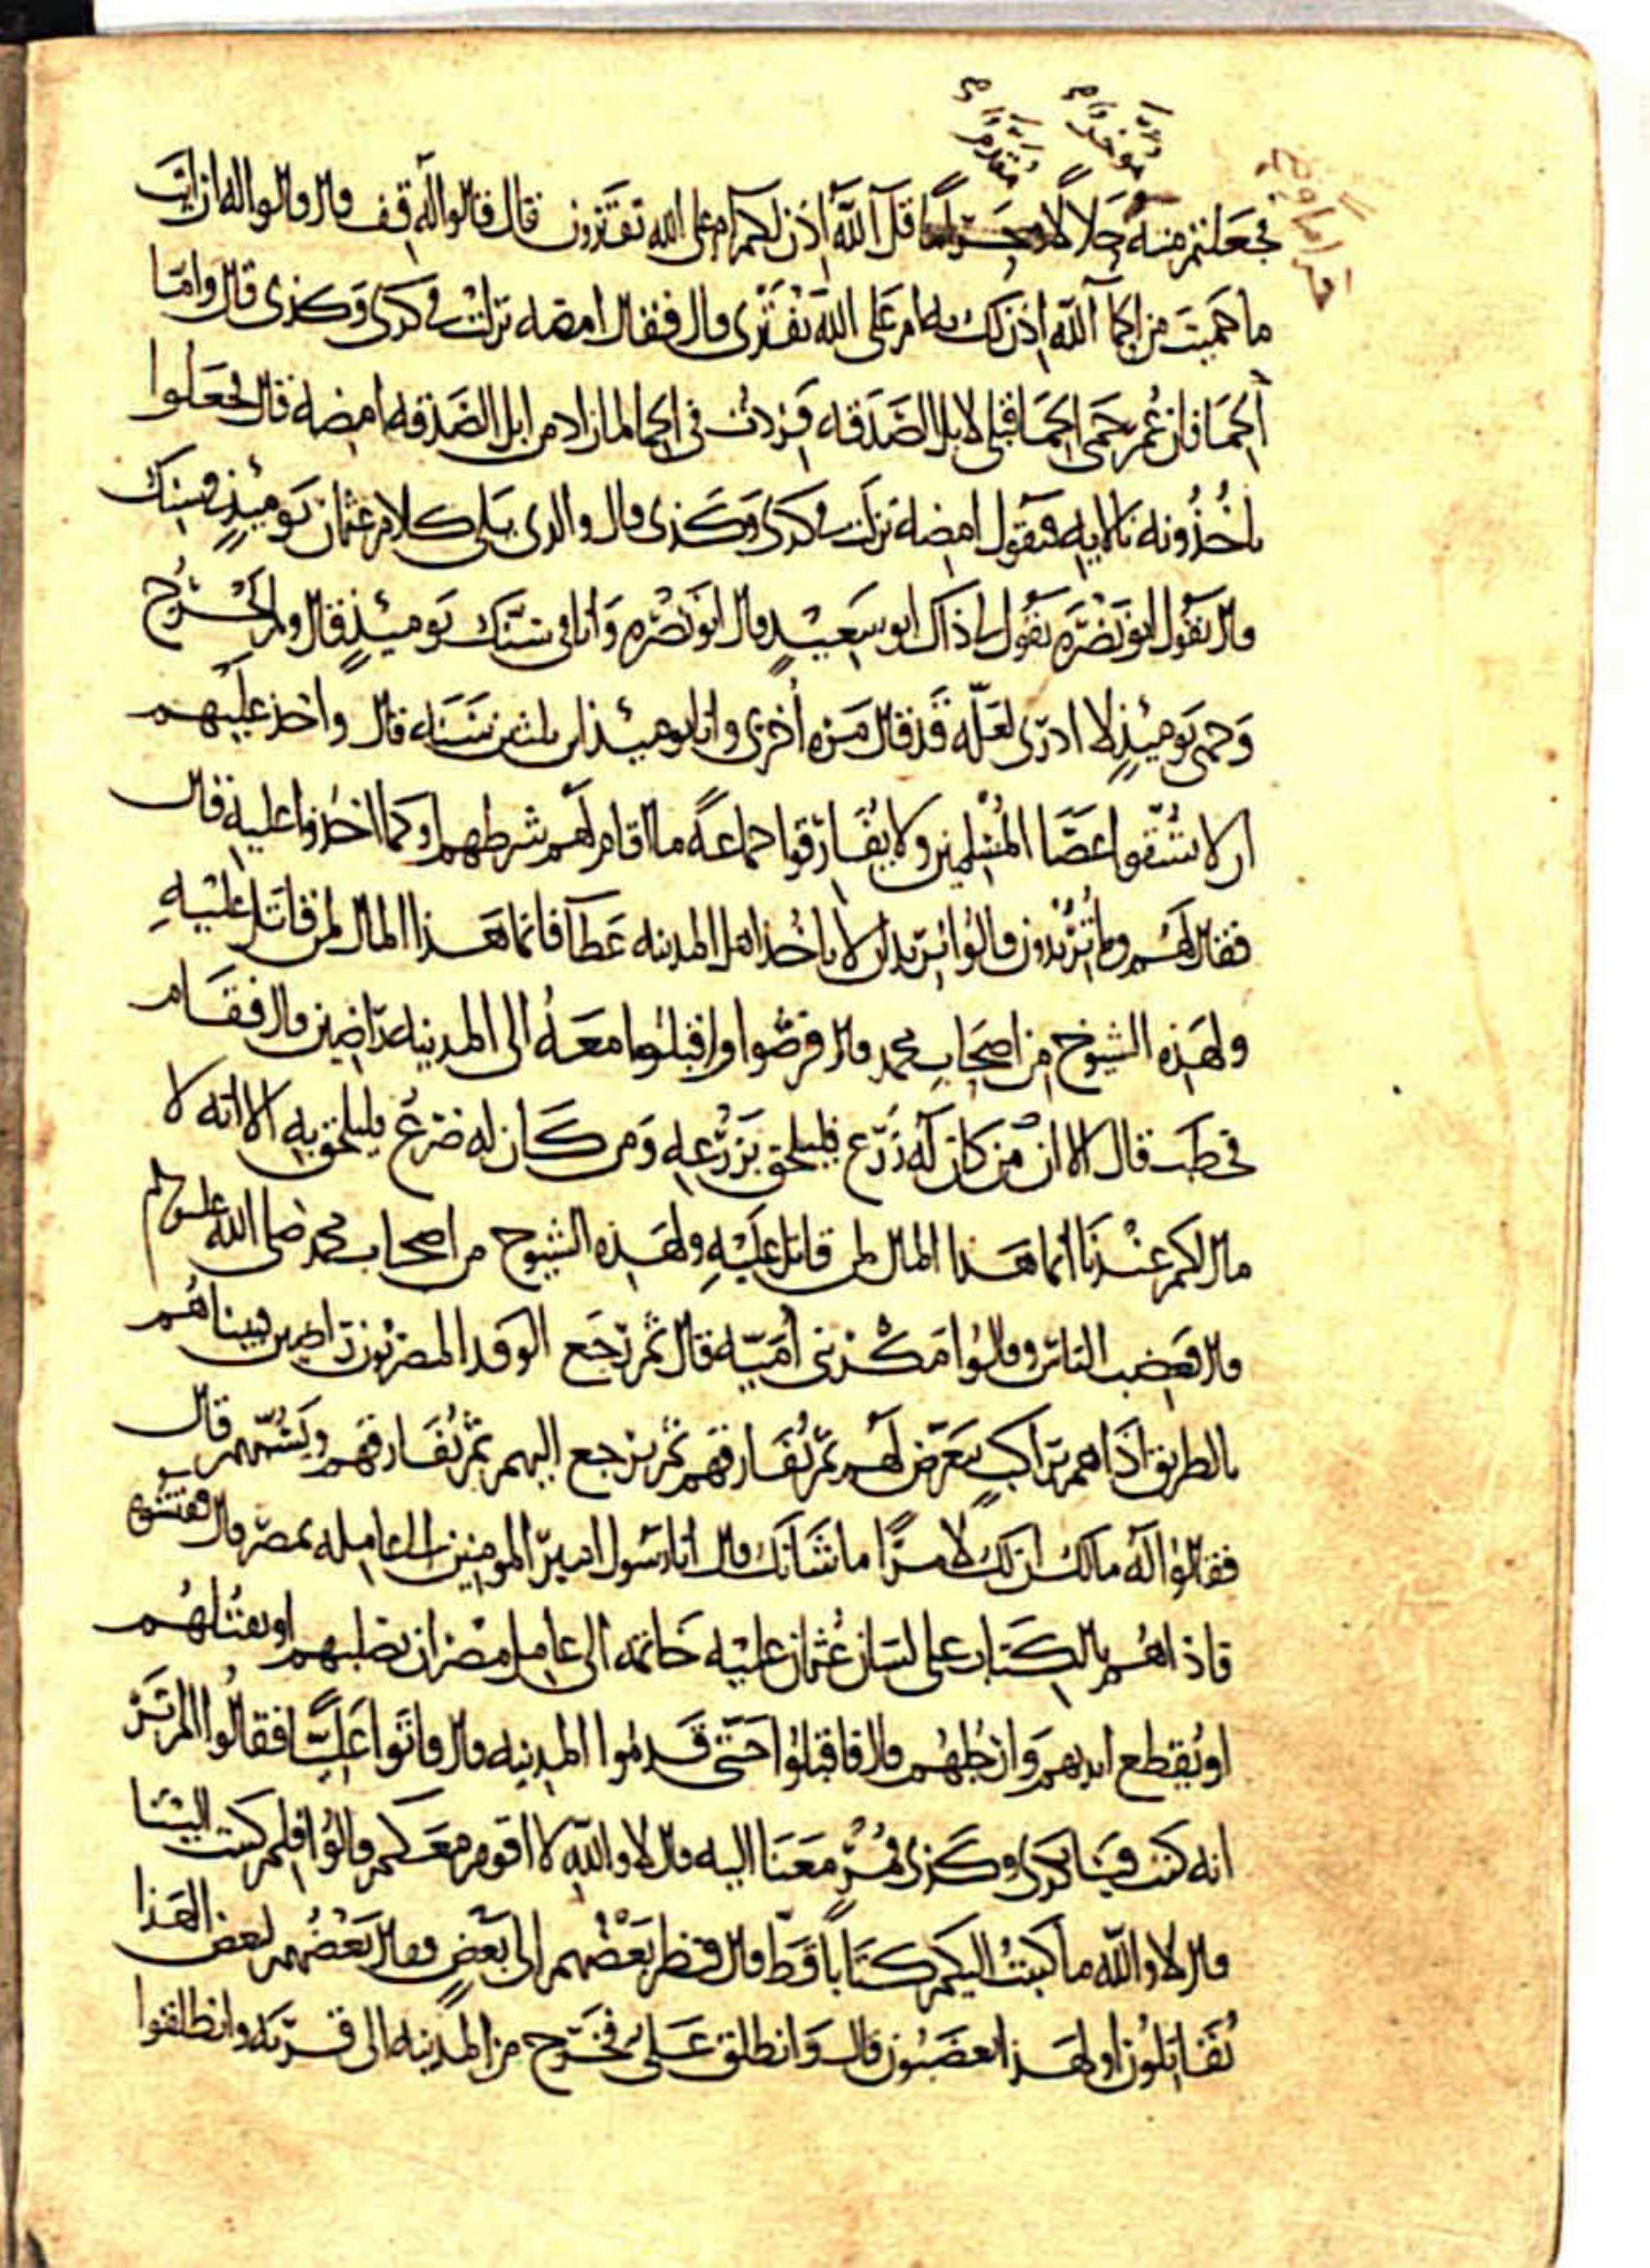 مؤخر م مقدم م
فجعلتم منه حلالا وحراما قل آلله اذن لكم ام على الله تفترون قال فقالوا له قف قال وقالوا له ارايت
ما حميت من الحما آلله اذن لك به ام على الله تفترى قال فقال امضه نزلت فى كدى وكذى قال واما
الحما فان عمر حمى الحما قبلى لابل الصدقه فزدت فى الحما لما زاد من ابل الصدقه امضه قال فجعلوا
ياخذونه بالايه فيقول امضه نزلت فى كدى وكذى قال والذى يلى كلام عثمان يومئذ فى سنك
قال يقول ابو نضره يقول لى ذاك ابو سعيد قال ابو نضره وانا فى سنك يومئذ قال ولم يخرج
وجهى يومئذ لا ادرى لعله قد قال مره اخرى وانا يومئذ ابن ثلثين سنه قال واخذ عليهم
ان لا يشقوا عصا المسلمين ولا يفارقوا جماعة ما اقام لهم شرطهم او كما اخذوا عليه قال
فقال لهم وما تريدون قالوا نريد ان لا ياخذ اهل المدينه عطآ فانما هذا المال لمن قاتل عليه
ولهذه الشيوخ من اصحاب محمد قال فرضوا واقبلوا معه الى المدينه راضين قال فقام
فخطب قال الا ان من كان له زرع فليلحق بزرعه ومن كان له ضرع فليلحق به الا انه لا
مال لكم عندنا انما هذا المال لمن قاتل عليه ولهذه الشيوخ من اصحاب محمد صلى الله عليه وسلم
قال فغضب الناس وقالوا مكر بنى امية قال ثم رجع الوفد المصريون راضين فبينا هم
بالطريق اذا هم براكب يتعرض لهم ثم يفارقهم ثم يرجع اليهم ثم يفارقهم ويسبهم قال
فقالوا له مالك ان لك لامرا ما شانك قال انا رسول امير المومنين الى عامله بمصر قال ففتشوه
فاذا هم بالكتاب على لسان عثمان عليه خاتمه الى عامل مصر ان يصلبهم او يقتلهم
او يقطع ايديهم وارجلهم قال فاقبلوا حتى قدموا المدينه قال فاتوا عليا فقالوا الم تر
انه كتب فينا بكدى وكذى فمر معنا اليه قال لا والله لا اقوم معكم قالوا فلم كتبت الينا
قال لا والله ما كتبت اليكم كتابا قط قال فنظر بعضهم الى بعض وقال بعضهم لبعض الهذا
تقاتلون او لهذا تغضبون قال وانطلق على فخرج من المدينه الى قريه وانطلقوا